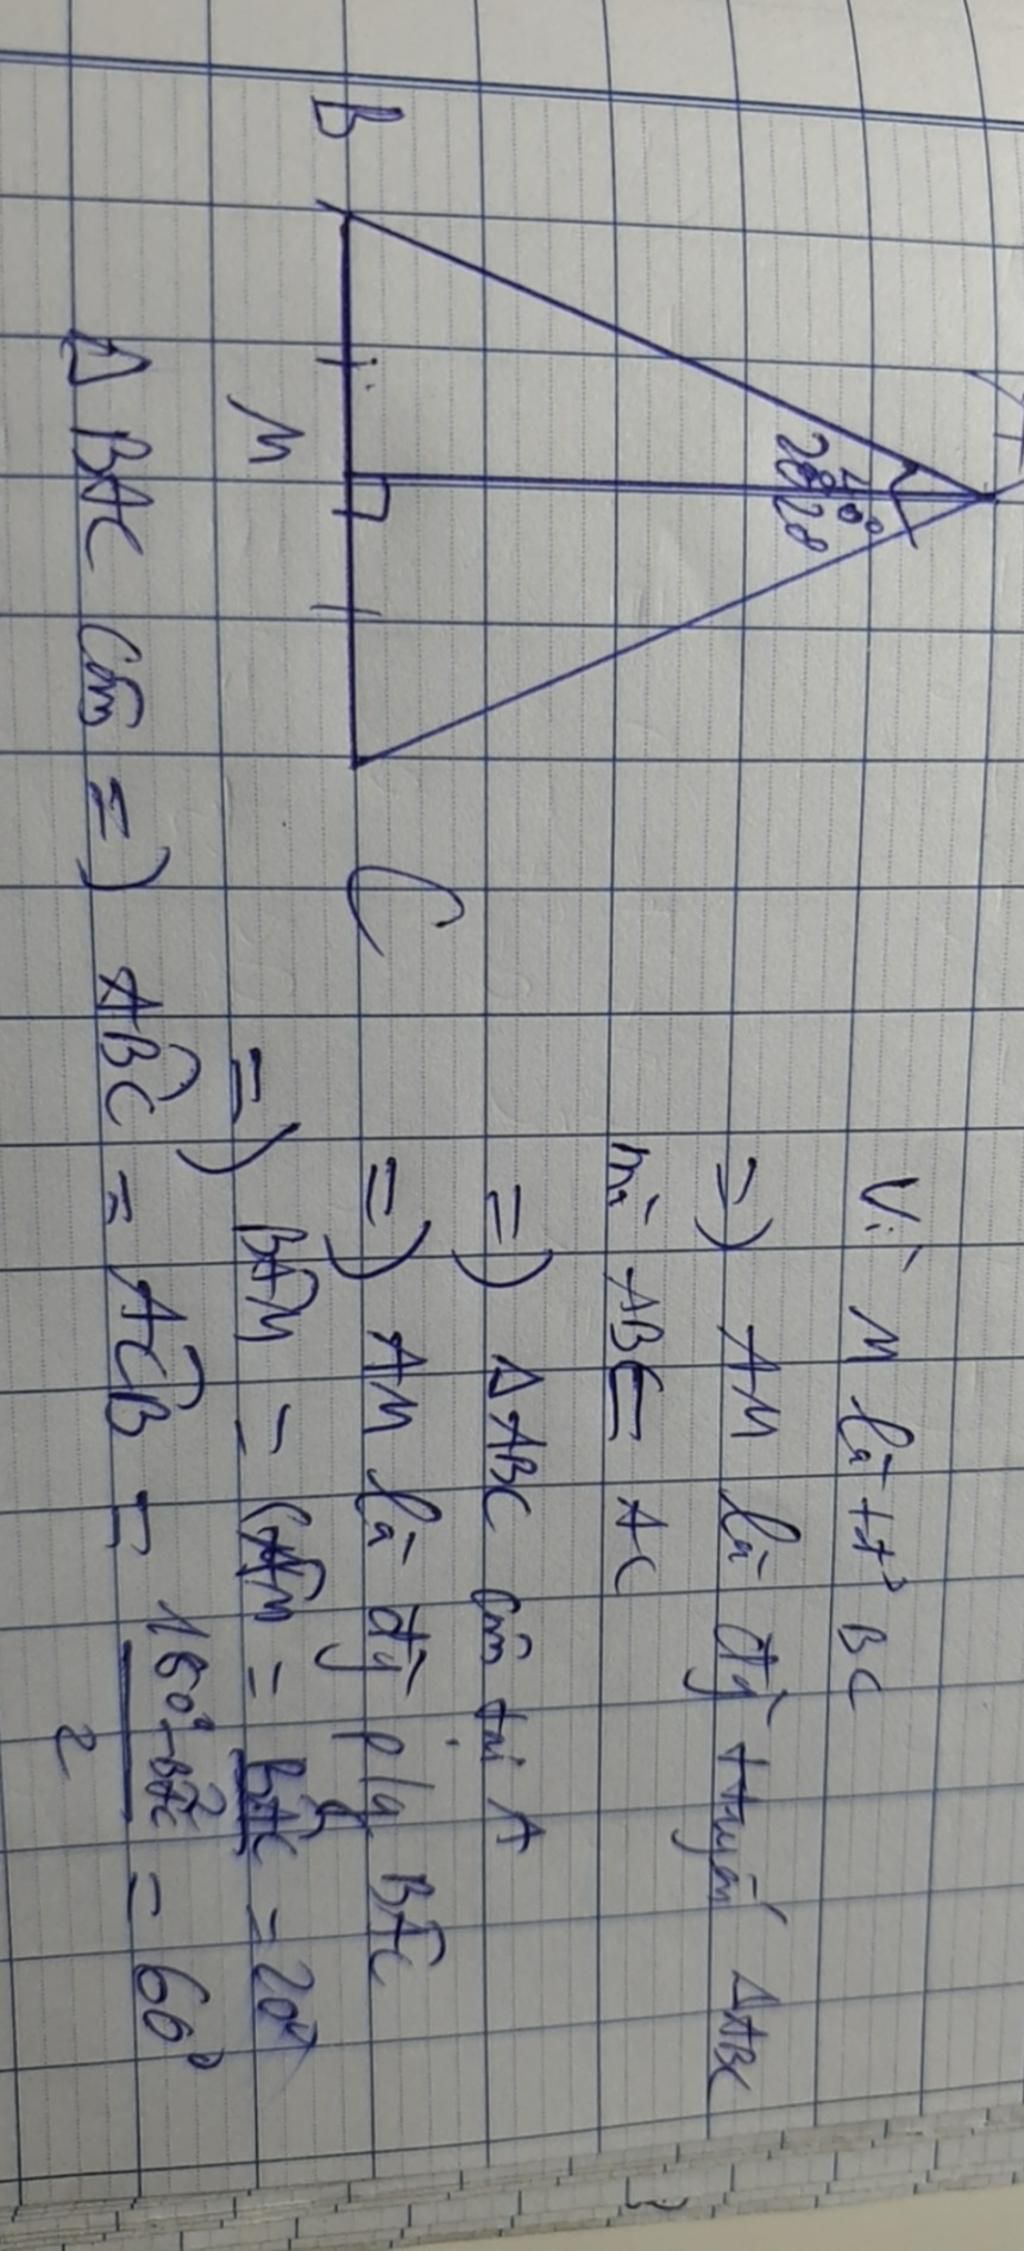 40°
20 20
B
M
C
Vì M là tđ BC
=) AM là đg truyến ΔABC
mà AB = AC
=) Δ ABC cân tại A
=) AM là đg p/g BAC
=) BAM = CAM = BAC = 20°
Δ BAC cân =) ABC = ACB = 180° - BAC = 60°
2